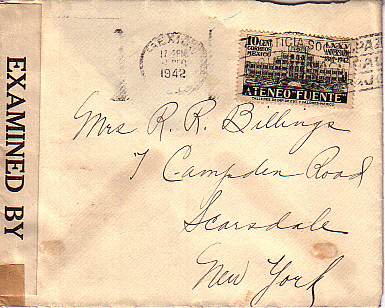 EXAMINED BY
MEXICO
1942
JUSTICIA SOCIAL
10 CENT.
CORREOS
MEXICO
ATENEO FUENTE
Mrs R. R. Billings
7 Campden Road
Scarsdale
New York